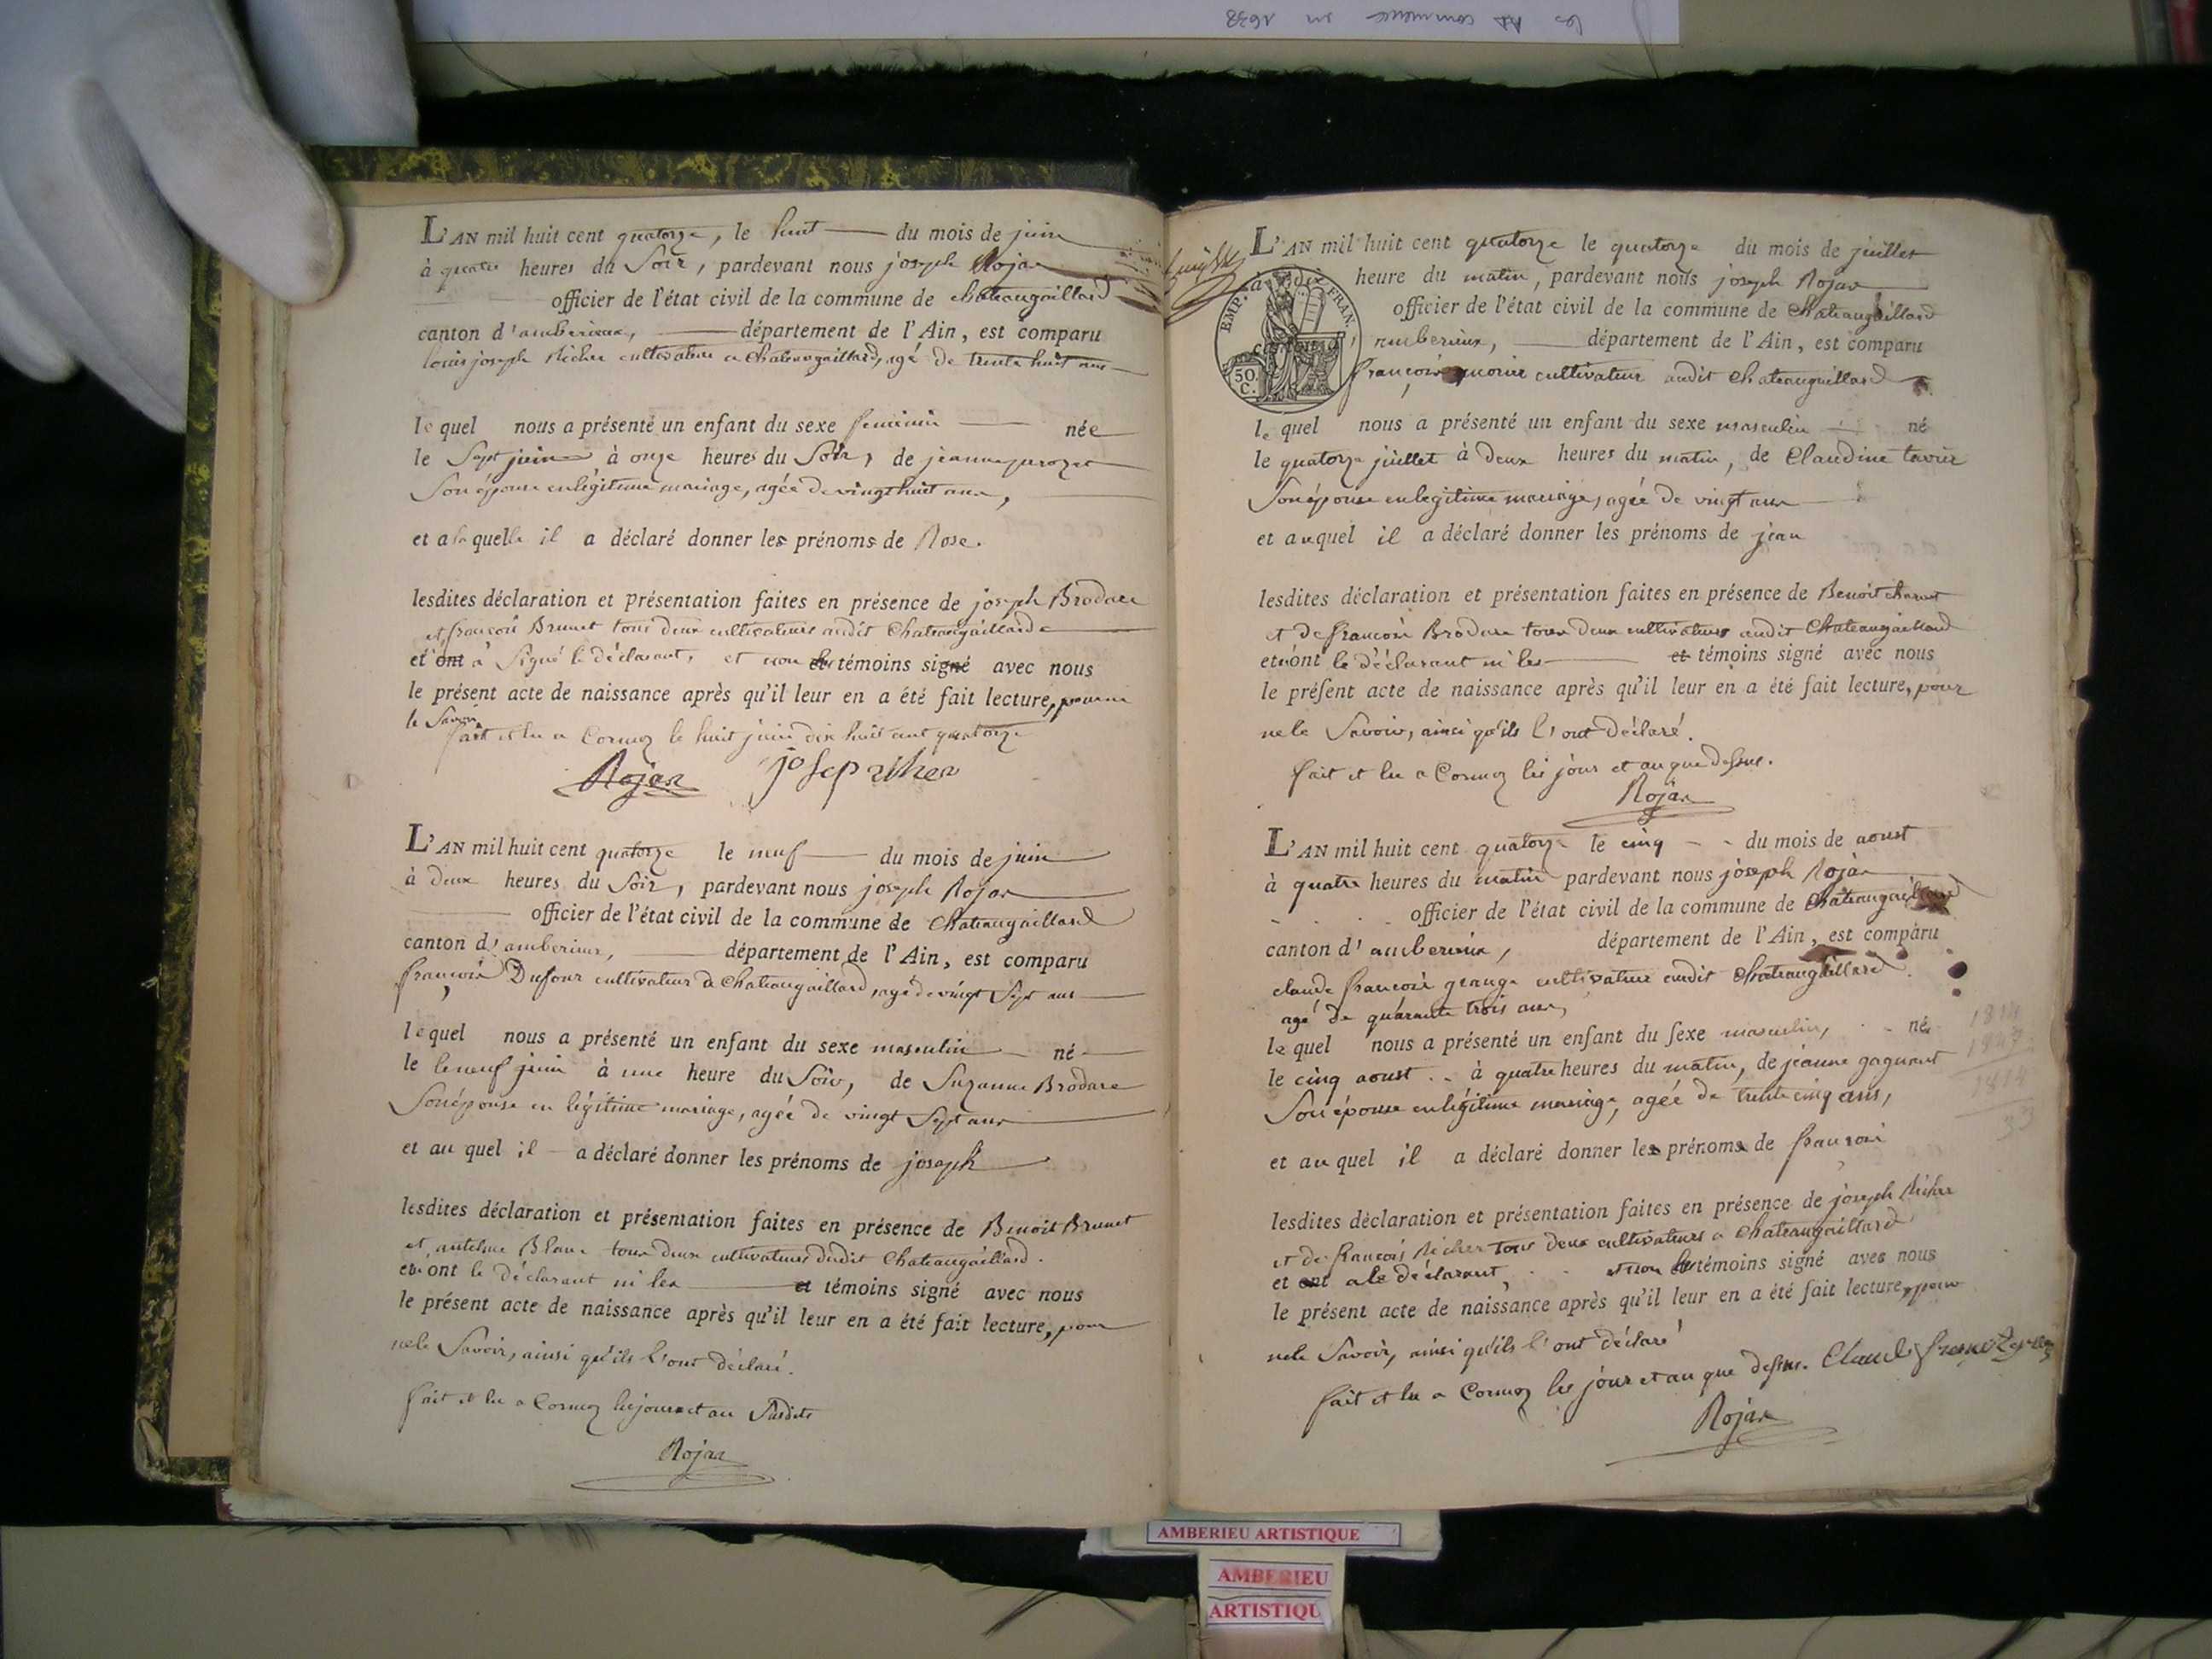 les AD commence en 1638
L'AN mil huit cent quatorze, le huit du mois de juin
à quatre heures du Soir, pardevant nous joseph Rojan
officier de l'état civil de la commune de Chateaugaillard
canton d'amberieux, département de l'Ain, est comparu
louis joseph Richer cultivateur a Chateaugaillard, agé de trente huit ans
le quel nous a présenté un enfant du sexe feminin née
le Sept juin à onze heures du Soir, de jeanne
Son épouse en légitime mariage, agée de vingt huit ans,
et a la quelle il a déclaré donner les prénoms de Rose.
lesdites déclaration et présentation faites en présence de joseph Brodare
et françois Brunet tous deux cultivateurs audit Chateaugaillard
et ont a Signé le déclarant, et non les témoins signé avec nous
le présent acte de naissance après qu'il leur en a été fait lecture, pour ne
le Savoir
fait et lu a Cormoz le huit juin dix huit cent quatorze
Rojan josep richer
L'AN mil huit cent quatorze le neuf du mois de juin
à deux heures du Soir, pardevant nous joseph Rojan
officier de l'état civil de la commune de Chateaugaillard
canton d'amberieux, département de l'Ain, est comparu
françois Dufour cultivateur a Chateaugaillard, agé de vingt Sept ans
le quel nous a présenté un enfant du sexe masculin né
le le neuf juin à une heure du Soir, de Suzanne Brodare
Son épouse en légitime mariage, agée de vingt Sept ans
et au quel il a déclaré donner les prénoms de joseph
lesdites déclaration et présentation faites en présence de Benoit Brunet
et antelme Blanc tous deux cultivateurs dudit Chateaugaillard.
et n'ont le déclarant ni les et témoins signé avec nous
le présent acte de naissance après qu'il leur en a été fait lecture, pour
ne le Savoir, ainsi qu'ils l'ont déclaré.
fait et lu a Cormoz les jour et an Susdits
Rojan
L'AN mil huit cent quatorze le quatorze du mois de juillet
à dix heure du matin, pardevant nous joseph Rojan
officier de l'état civil de la commune de Chateaugaillard
amberieux, département de l'Ain, est comparu
françois cultivateur audit Chateaugaillard
EMP. FRAN.
50.
C.
le quel nous a présenté un enfant du sexe masculin né
le quatorze juillet à deux heures du matin, de Claudine tavier
Son épouse en legitime mariage, agée de vingt ans
et au quel il a déclaré donner les prénoms de jean
lesdites déclaration et présentation faites en présence de Benoit
et de françois Brodare tous deux cultivateurs audit Chateaugaillard
et n'ont le déclarant ni les et témoins signé avec nous
le présent acte de naissance après qu'il leur en a été fait lecture, pour
ne le Savoir, ainsi qu'ils l'ont déclaré.
fait et lu a Cormoz les jour et an que dessus.
Rojan
L'AN mil huit cent quatorze le cinq du mois de aoust
à quatre heures du matin pardevant nous joseph Rojan
officier de l'état civil de la commune de Chateaugaillard
canton d'amberieux, département de l'Ain, est comparu
claude françois grange cultivateur audit Chateaugaillard.
agé de quarante trois ans,
le quel nous a présenté un enfant du sexe masculin, né
le cinq aoust à quatre heures du matin, de jeanne gagnant
Son épouse en légitime mariage, agée de trente cinq ans,
et au quel il a déclaré donner les prénoms de françois
lesdites déclaration et présentation faites en présence de joseph Richer
et de françois Richer tous deux cultivateurs a Chateaugaillard
et ont a le déclarant, et non les témoins signé avec nous
le présent acte de naissance après qu'il leur en a été fait lecture, pour
ne le Savoir, ainsi qu'ils l'ont déclaré
fait et lu a Cormoz les jour et an que dessus. Claude
Rojan
1814
1847
1814
33
AMBERIEU ARTISTIQUE
AMBERIEU
ARTISTIQU